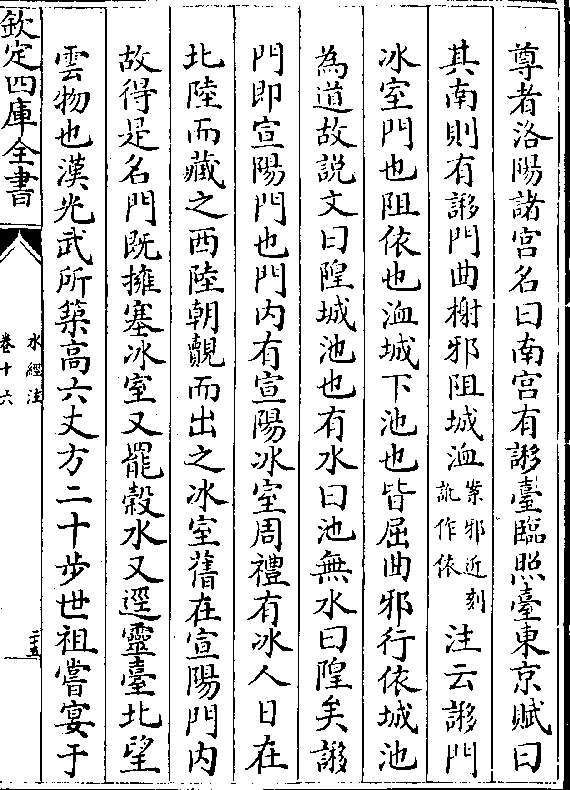 尊者洛陽諸宫名曰南宫有謻臺臨照臺東京賦曰
其南則有謻門曲榭邪阻城洫案邪近刻訛作依注云謻門
冰室門也阻依也洫城下池也皆屈曲邪行依城池
為道故説文曰隍城池也有水曰池無水曰隍矣謻
門即宣陽門也門内有宣陽冰室周禮有冰人日在
北陸而藏之西陸朝覿而出之冰室舊在宣陽門内
故得是名門既擁塞冰室又罷穀水又逕靈臺北望
雲物也漢光武所築髙六丈方二十步世祖嘗宴于
欽定四庫全書
水經注
卷十六
二十五